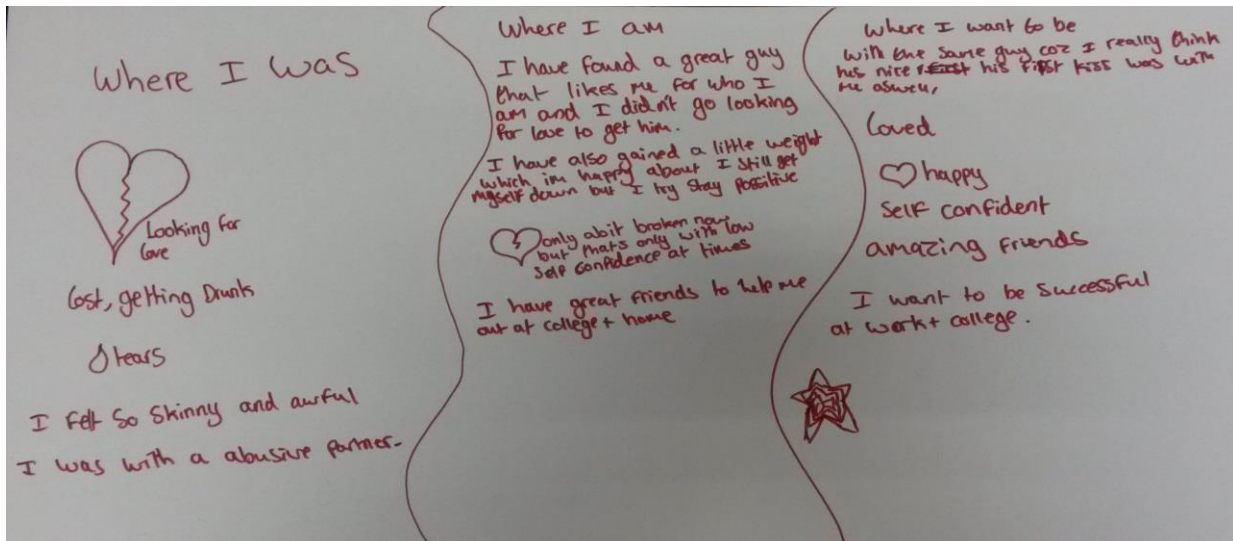 Where I was
Looking for
love
lost, getting Drunk
tears
I felt so skinny and awful
I was with a abusive partner-
Where I am
I have found a great guy
that likes me for who I
am and I didn't go looking
for love to get him.
I have also gained a little weight
which im happy about I still get
myself down but I try stay possitive
only abit broken now
but thats only with low
self confidence at times
I have great friends to help me
out at college + home
where I want to be
with the same guy coz I really think
his nice his first kiss was with
me aswell,
loved
happy
self confident
amazing friends
I want to be successful
at work + college.